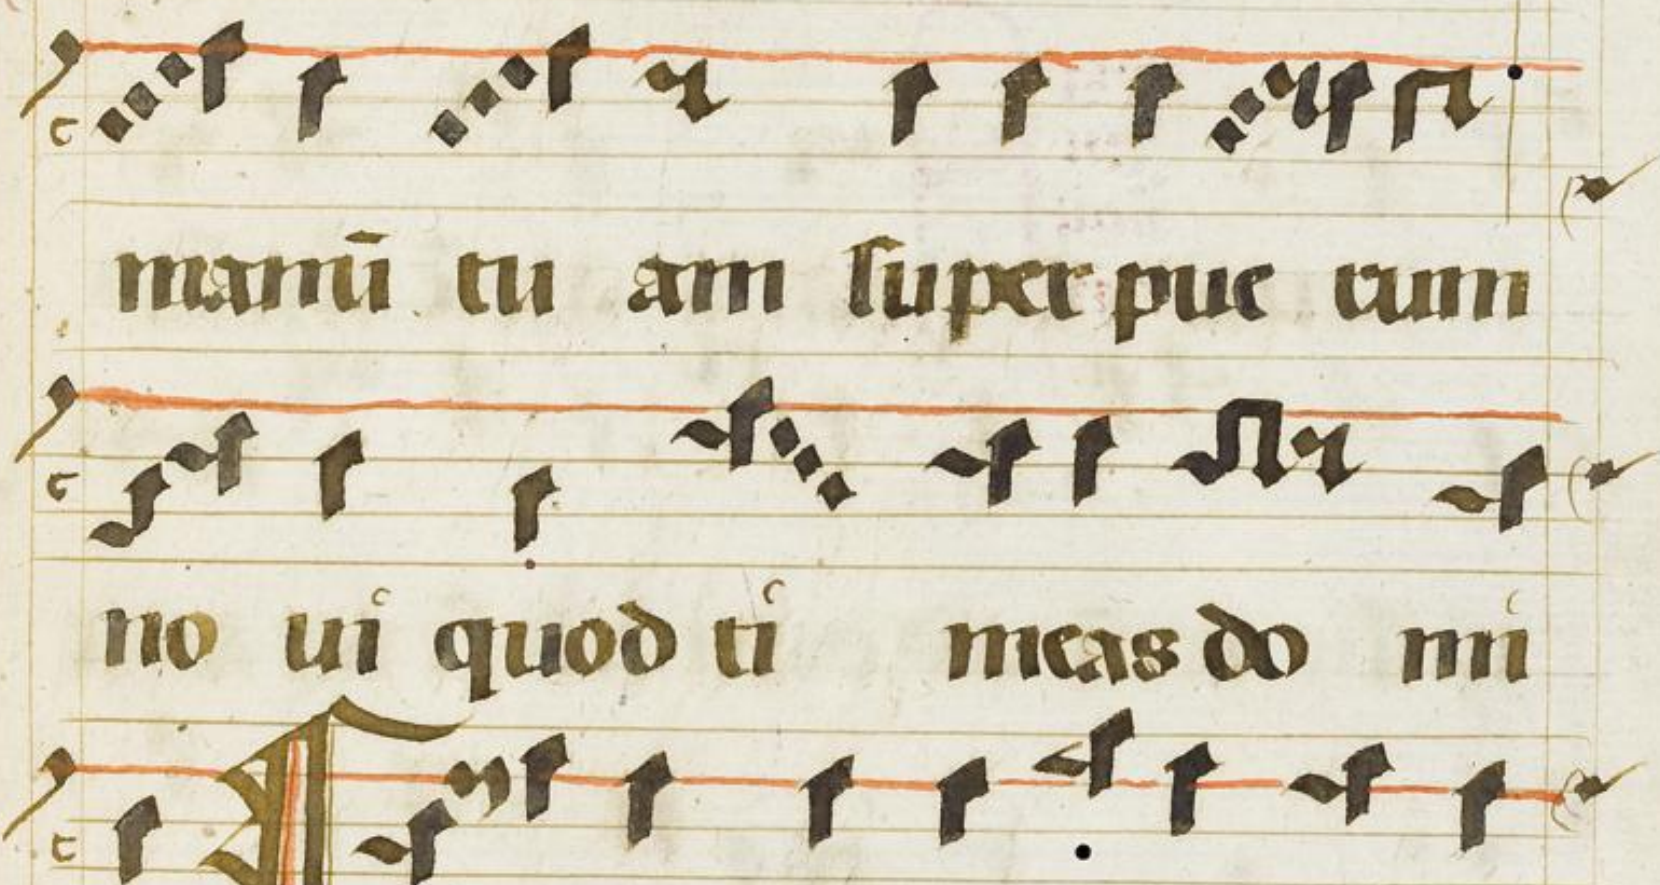 c
manū tu am super pue rum
c
no ui quod ti meas do mi
c A